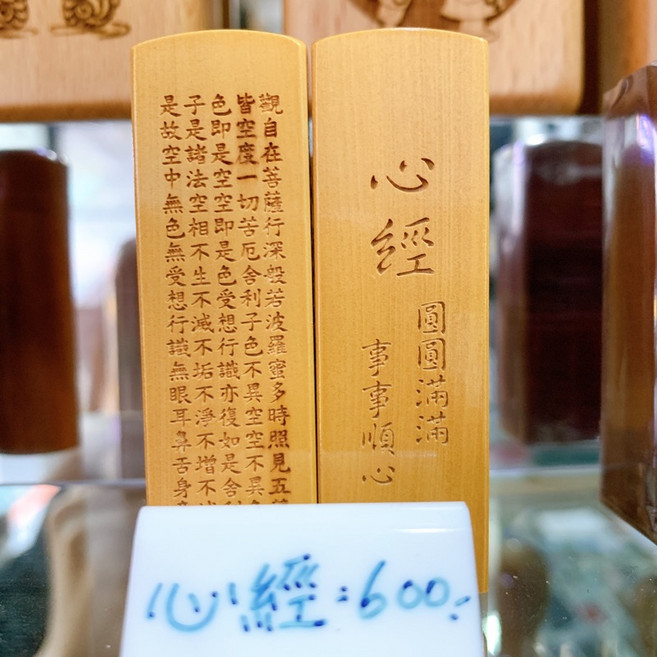 觀自在菩薩行深般若波羅蜜多時照見五
皆空度一切苦厄舍利子色不異空空不異
色即是空空即是色受想行識亦復如是舍
子是諸法空相不生不滅不垢不淨不增不
是故空中無色無受想行識無眼耳鼻舌身
心經
圓圓滿滿
事事順心
心經:600.-